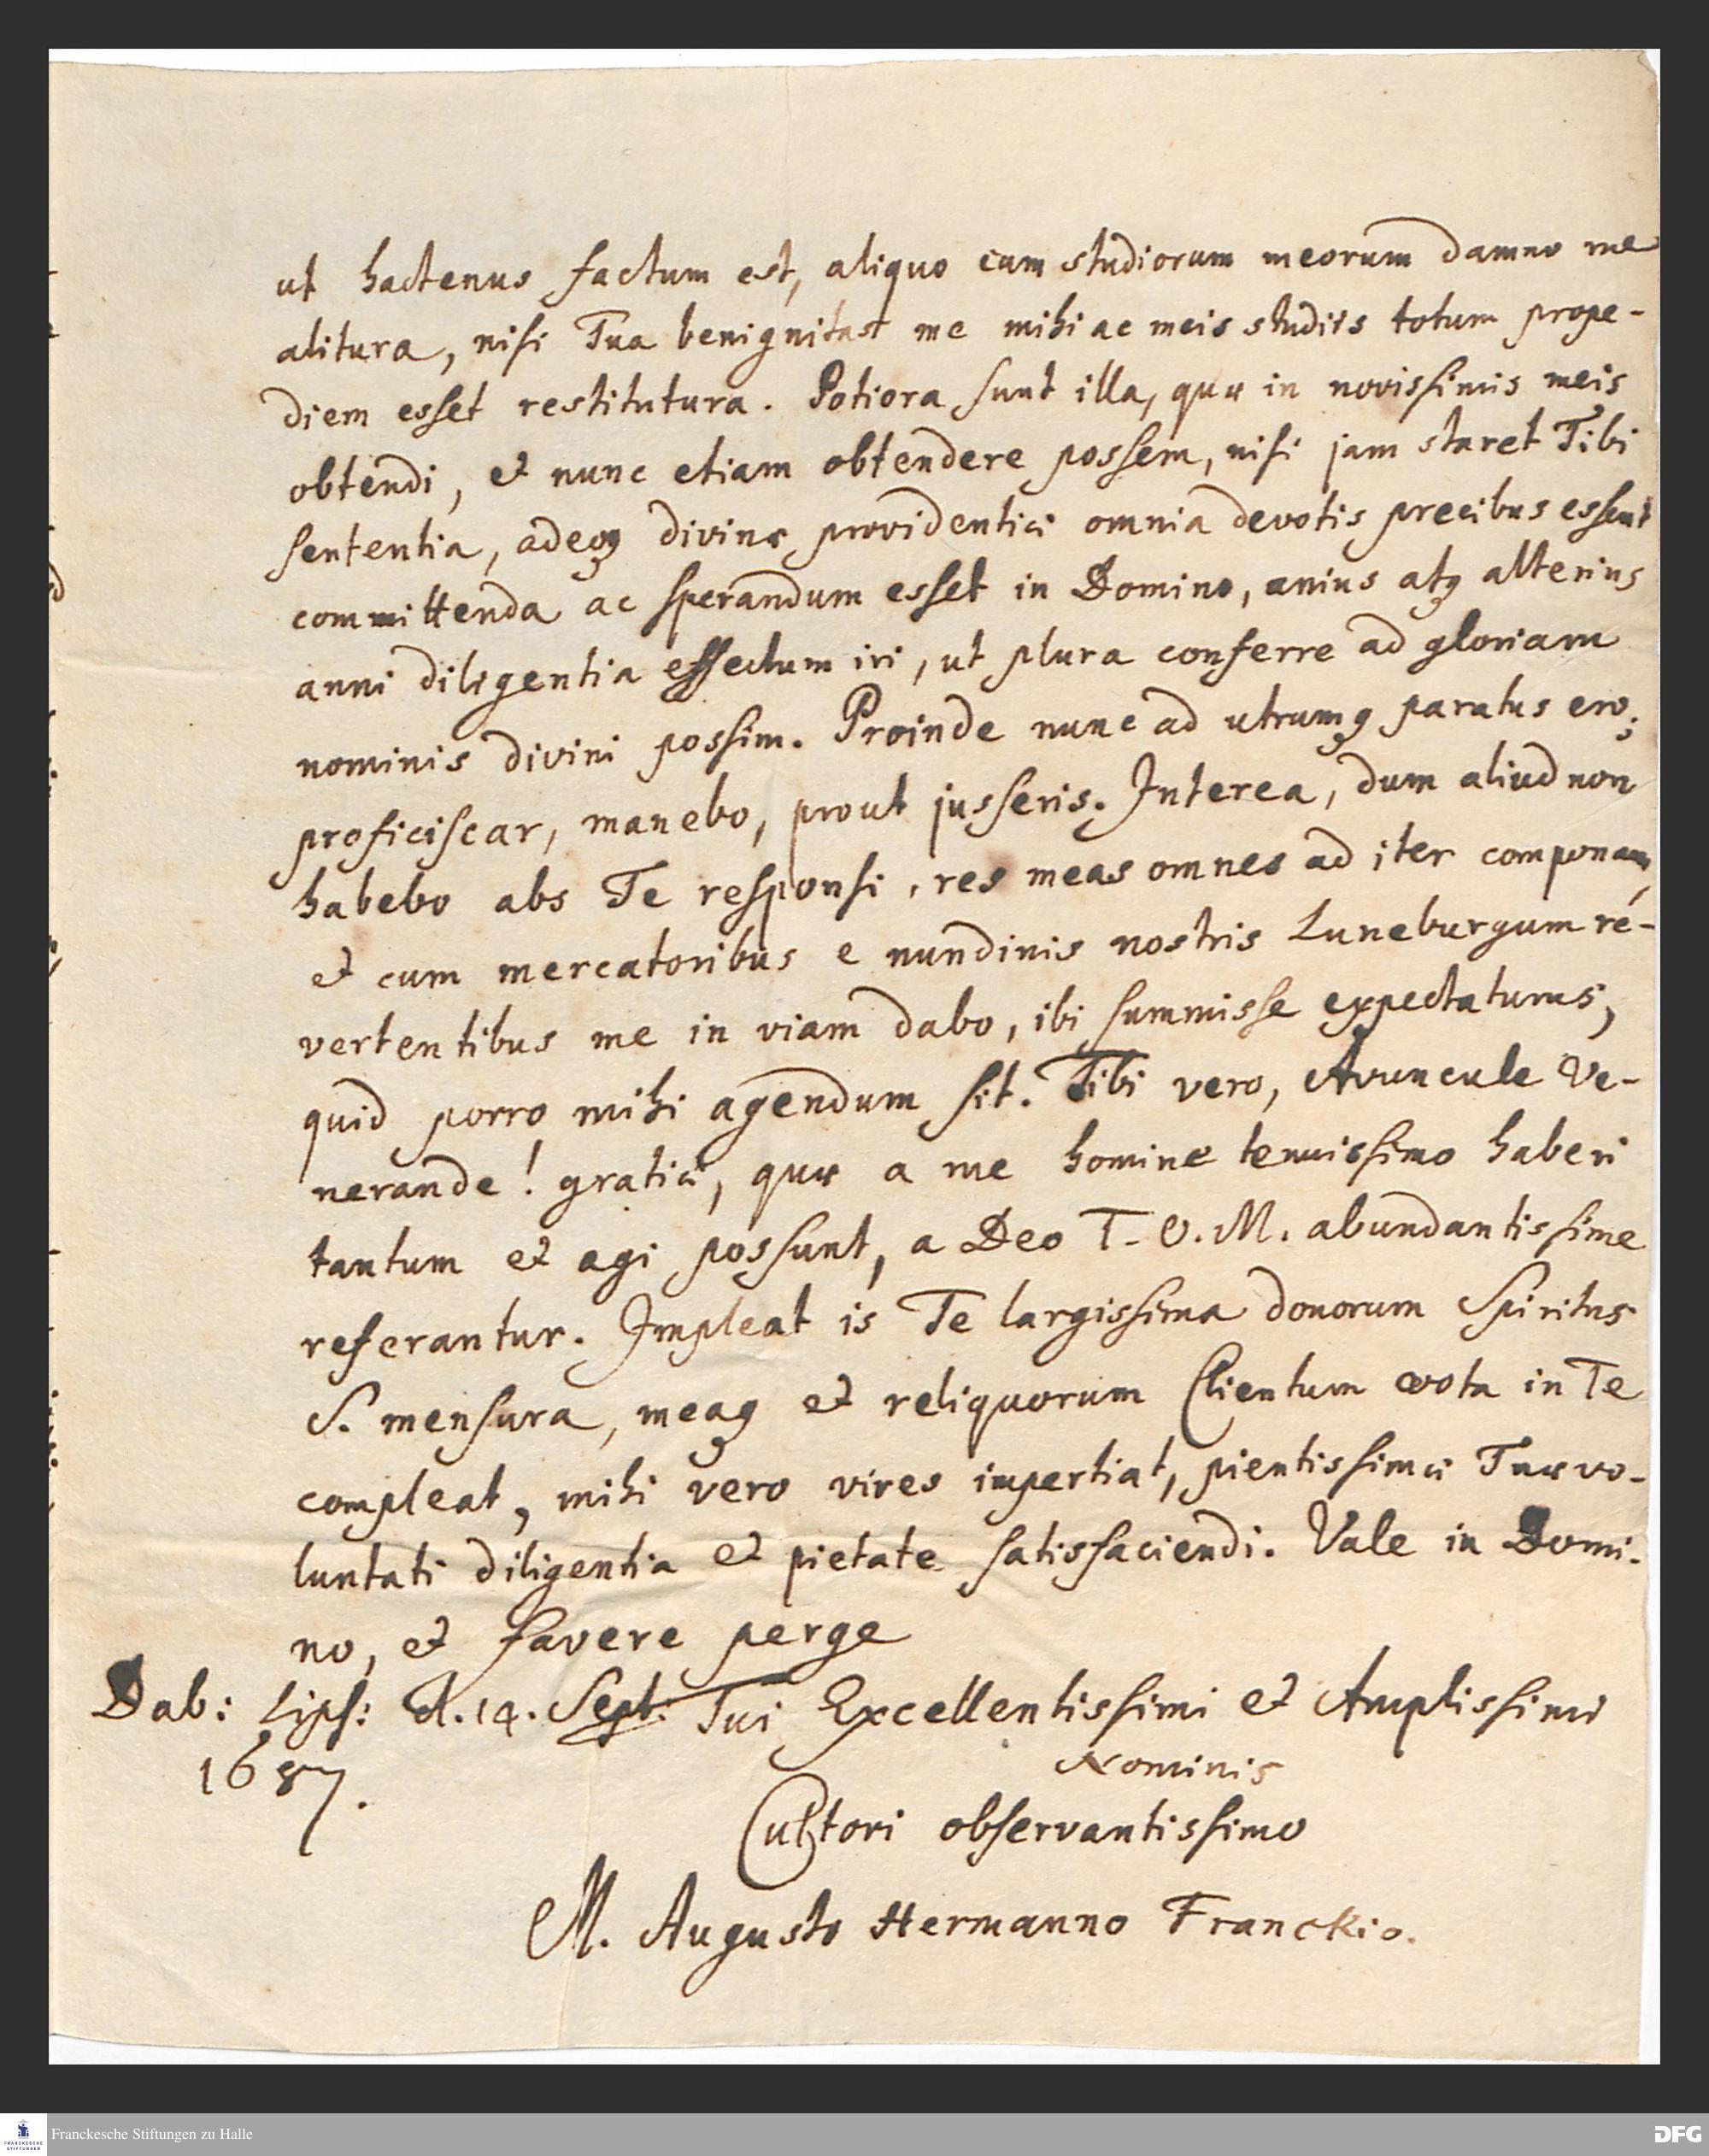 ut hactenus factum est, aliquo cum studiorum meorum damno me
alitura, nisi Tua benignitas me mihi ac meis studiis totum prope-
diem esset restitutura. Potiora sunt illa, quæ in novissimis meis
obtendi, et nunc etiam obtendere possem, nisi jam staret Tibi
sententia, adeoq divinæ providentiæ omnia devotis precibus essent
committenda ac sperandum esset in Domino, unius atq alterius
anni diligentia effectum iri, ut plura conferre ad gloriam
nominis divini possim. Proinde nunc ad utrumq paratus ero;
proficiscar, manebo, prout jusseris. Interea, dum aliud non
habebo abs Te responsi, res meas omnes ad iter componam,
et cum mercatoribus e nundinis nostris Luneburgum re-
vertentibus me in viam dabo, ibi summisse expectaturus,
quid porro mihi agendum sit. Tibi vero, Avuncule Ve-
nerande! gratiæ, quæ a me homine tenuissimo haberi
tantum et agi possunt, a Deo T. O. M. abundantissime
referantur. Impleat is Te largissima donorum Spiritus
S. mensura, meaq et reliquorum Clientum vota in Te
compleat, mihi vero vires impertiat, pientissimæ Tuæ vo-
luntati diligentia et pietate satisfaciendi. Vale in Domi-
no, et favere perge
Dab: Lips: d. 14. Sept: Tui Excellentissimi et Amplissimi
1687. Nominis
Cultori observantissimo
M. Augusto Hermanno Franckio.
Franckesche Stiftungen zu Halle
FRANCKESCHE STIFTUNGEN
DFG